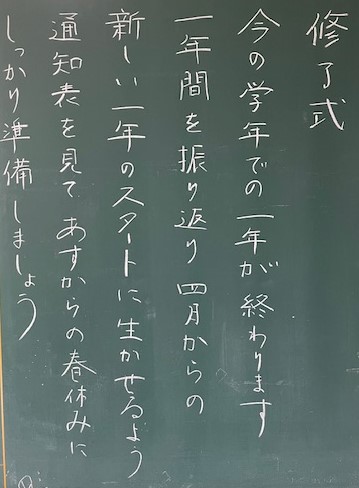 修了式
今の学年での一年が終わります
一年間を振り返り 四月からの
新しい一年のスタートに生かせるよう
通知表を見て あすからの春休みに
しっかり準備しましょう